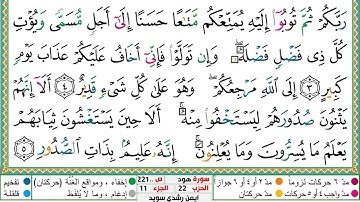 رَبَّكُمْ ثُمَّ تُوبُوٓا۟ إِلَيْهِ يُمَتِّعْكُم مَّتَـٰعًا حَسَنًا إِلَىٰٓ أَجَلٍ مُّسَمًّى وَيُؤْتِ
كُلَّ ذِى فَضْلٍ فَضْلَهُۥ ۖ وَإِن تَوَلَّوْا۟ فَإِنِّىٓ أَخَافُ عَلَيْكُمْ عَذَابَ يَوْمٍ
كَبِيرٍ ٣ إِلَى ٱللَّهِ مَرْجِعُكُمْ ۖ وَهُوَ عَلَىٰ كُلِّ شَىْءٍ قَدِيرٌ ٤ أَلَآ إِنَّهُمْ
يَثْنُونَ صُدُورَهُمْ لِيَسْتَخْفُوا۟ مِنْهُ ۚ أَلَا حِينَ يَسْتَغْشُونَ ثِيَابَهُمْ
يَعْلَمُ مَا يُسِرُّونَ وَمَا يُعْلِنُونَ ۚ إِنَّهُۥ عَلِيمٌۢ بِذَاتِ ٱلصُّدُورِ ٥
مدّ ٦ حركات لزوما مدّ ٢ أو ٤ أو ٦ جوازا
سورة هود ص ..221
إخفاء، ومواقع الغنّة (حركتان) تفخيم
مدّ واجب ٤ أو ٥ حركات مدّ حركتان
الحزب 22 الجزء 11
إدغام، وما لا يُلفظ قلقلة
ايمن رشدي سويد